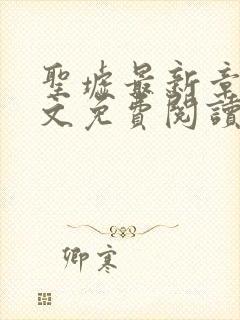 聖墟最新章
文免費閱讀
卿寒